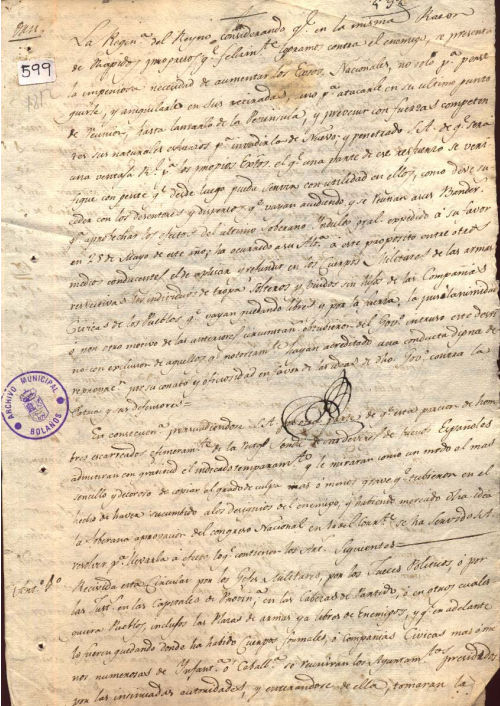 599
La Regen.ª del Reyno, considerando q.e en la misma
de prosperos q.e felizm.te logramos contra el enemigo, se presenta
la imperiosa necesidad de aumentar los Extos. Nacionales, no solo p.ª perse
guirle, y aniquilarle en sus retiradas sino p.ª atacarle en su ultimo punto
de reunion, hasta lanzarlo de la Peninsula, y precaver con fuerzas competen
tes sus naturales p.ª invadirla de Nuevo; y penetrado S.A. de q.e sera
una ventaja p.ª los propios Extos. el q.e una parte de este refuerzo se veri
fique con gente q.e desde luego pueda servir con utilidad en ellos, como debe su
ceder con los desertores y dispersos q.e vayan acudiendo, y se reunan a sus Bander.s
p.ª aprovechar los efectos del ultimo Soberano Indulto gral. expedido a su favor
en 25 de Mayo de este año; ha ocurrido a su Alt.ª a este proposito entre otros
medios conducentes el de aplicar y refundir en los Cuerpos Militares de las armas
respectivas los individuos de tropa Solteros y Viudos sin hijos de las Compañias
Civicas de los Pueblos q.e vayan quedando libres y por la fuerza, la pusilanimidad
ú por otro motivo de las anteriores circunstan.s obtubieron del Gov.no intruso este desti
no con exclusion de aquellos q.e notoriam.te hayan acreditado una conducta digna de
reprension p.r su conato y oficiosidad en favor de las ideas de dho. Gov.no contra la
Patria y sus defensores=
En consecuen.ª persuadiendose S.A. de q.e esta porcion de hom
bres escarriados de buenos Españoles
admitiran con gratitud el indicado temperam.to y le miraran como un modo el mas
sencillo y decoroso de espiar el grado de culpa mas ó menos grave q.e tubieron en el
hecho de haver sucumbido a los designios del enemigo, y habiendo merecido dha. idea
la Soberana aprovacion del Congreso Nacional se ha servido S.A.
resolver q.e llevarla a efecto lo q.e contienen los Art.s Siguientes
Art.º 1º Recivida esta Circular por los Gefes Militares, por los Jueces Politicos, ó por
las Just.s en las Capitales de Provin.ª, en las Cabezas de Partido, ó en otros cuales
quiera Pueblos, inclusos las Plazas de armas ya libres de Enemigos, y q.e en adelante
lo fueren quedando donde ha habido Cuerpos formales, ó compañias Civicas mas ó me
nos numerosas de Infant.ª ó Caball.ª se reuniran los Ayuntam.tos presididos
por las insinuadas autoridades, y enterandose de ella, tomaran la
ARCHIVO MUNICIPAL
BOLAÑOS